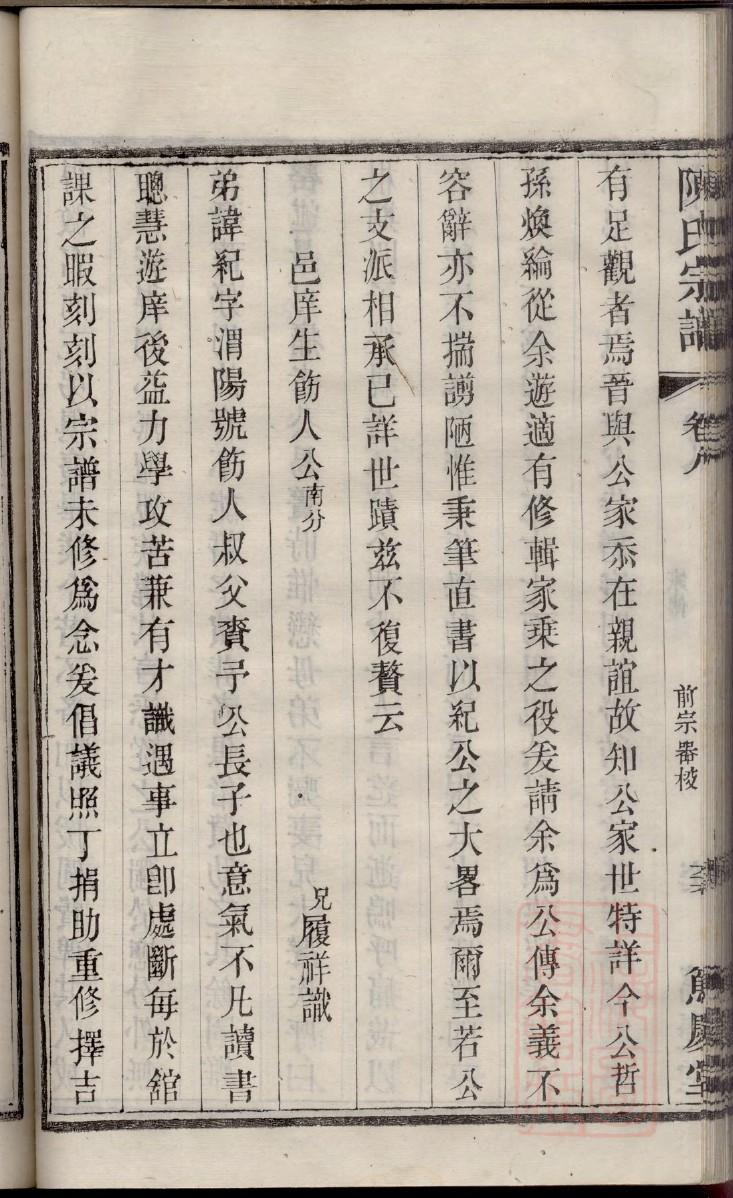 陳氏宗譜
卷八
前宗器校
有足觀者焉吾與公家忝在親誼故知公家世特詳今公哲
孫煥綸從余遊適有修輯家乘之役爰請余爲公傳余義不
容辭亦不揣謭陋惟秉筆直書以紀公之大畧焉爾至若公
之支派相承已詳世蹟兹不復贅云
邑庠生飭人公南分
兄履祥識
弟諱紀字渭陽號飭人叔父賚予公長子也意氣不凡讀書
聰慧遊庠後益力學攻苦兼有才識遇事立卽處斷每於舘
課之暇刻刻以宗譜未修爲念爰倡議照丁捐助重修擇吉